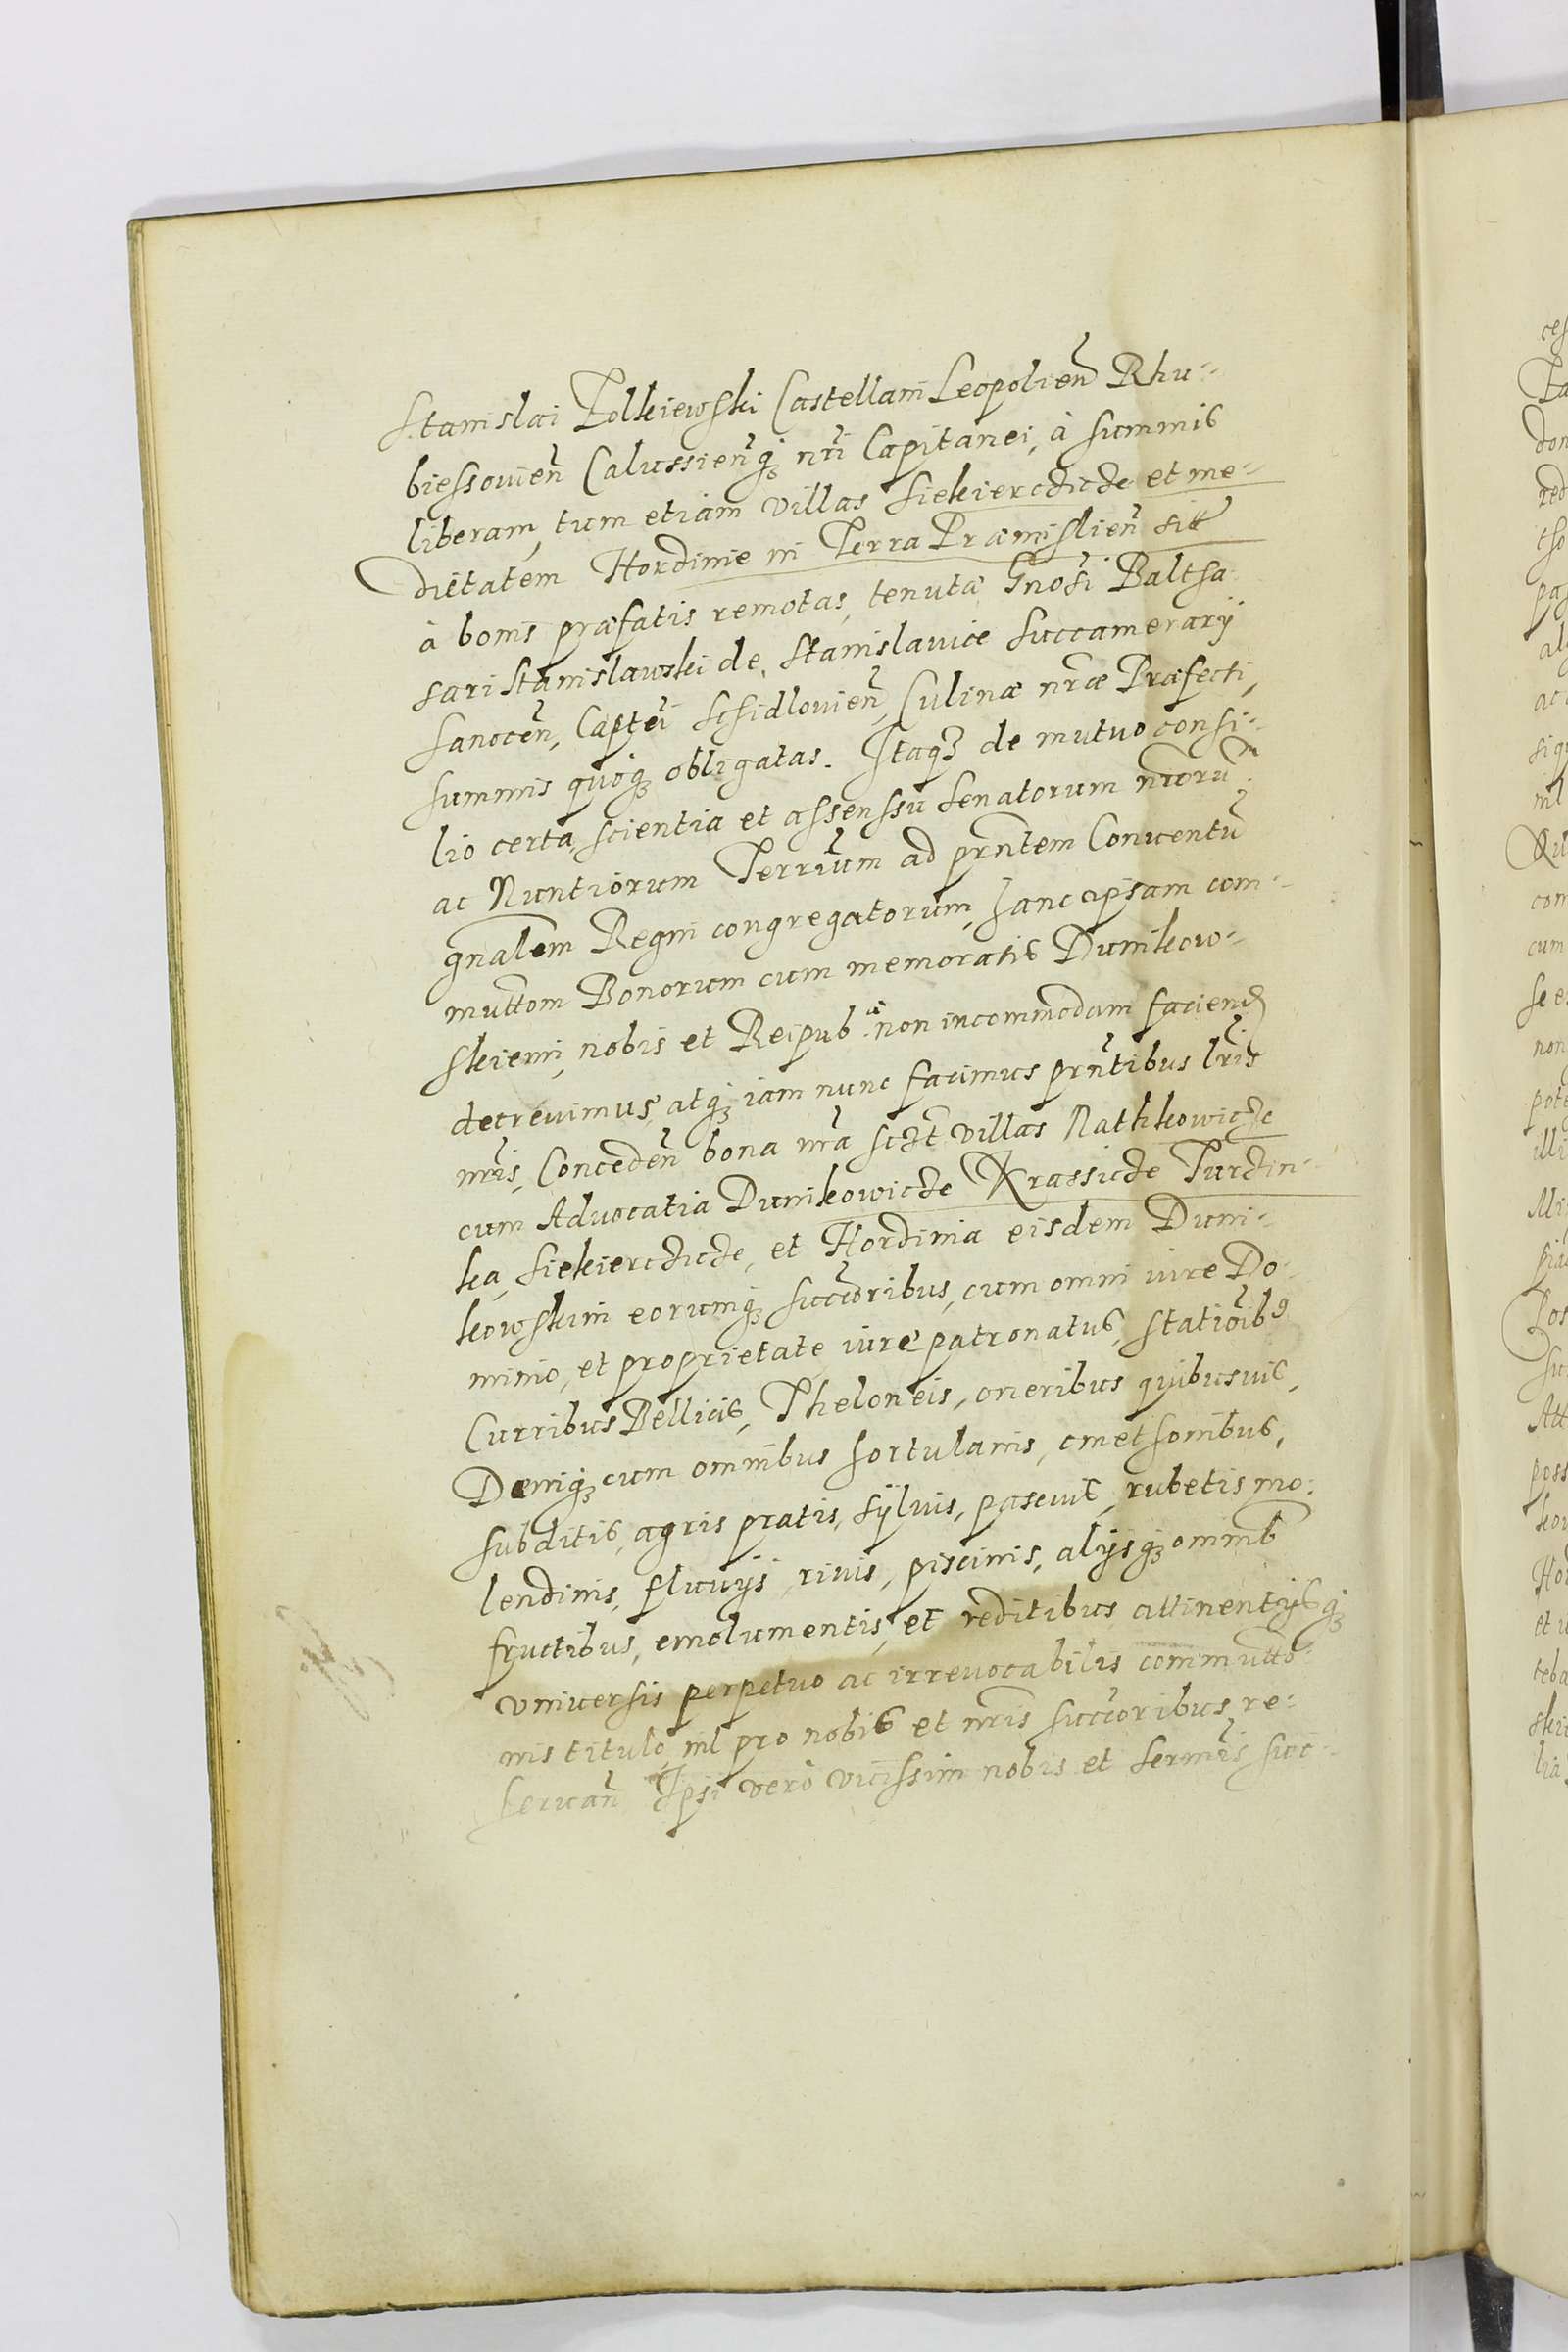 Stanislai Zolkiewski Castellani Leopolien̄ Rhu-
biessovien̄ Calussien̄qꝫ nr̄i Capitanei, à summis
liberam, tum etiam villas Siekierczicze et me-
dietatem Hordinie in Terra Præmislien̄ sit̄
à bonis præfatis remotas, tenutæ Gnosi Baltsa
sari Stanislawski de Stanislavice Succamerarij
Sanocen̄, Capt̄ei Schidlovien̄, Culinæ nr̄æ Præfecti,
summis quoqꝫ obligatas. Itaqꝫ de mutuo consi-
lio certa, scientia et assenssu Senatorum nr̄orum
ac Nuntiorum Terr̄ium ad prn̄tem Conventū
gn̄alem Regni congregatorum, hanc ipsam com-
mutt̄om Bonorum cum memoratis Dunikow-
skiemi, nobis et Reipub. non incommodam faciend
decrevimus, atqꝫ iam nunc facimus prn̄tibus lr̄is
nr̄is, Conceden̄ bona nr̄a sczt̄ villas Nathkowicze
cum Advocatia Dunikowicze Krassicze Turzin-
ka, Siekierczicze, et Hordinia eisdem Duni-
kowskim eorumqꝫ succ̄oribus, cum omni iure Do-
minio, et proprietate iure patronatus, statiōibꝰ
Curribus Bellicis, Theloneis, oneribus quibusvis,
Deniqꝫ cum omnibus hortulanis, cmethonibus,
subditis, agris pratis, sÿlvis, pascuis, rubetis mo:
lendinis, fluvijs rivis, piscinis, alijsqꝫ omnib
fructibus, emolumentis, et reditibus attinentijsqꝫ
vniversis perpetuo ac irrevocabilis commutt̄o-
nis titulo, nl̄ pro nobis et nr̄is succ̄oribus re-
servan̄ Ipsi verò vicissim nobis et Serm̄is suc-